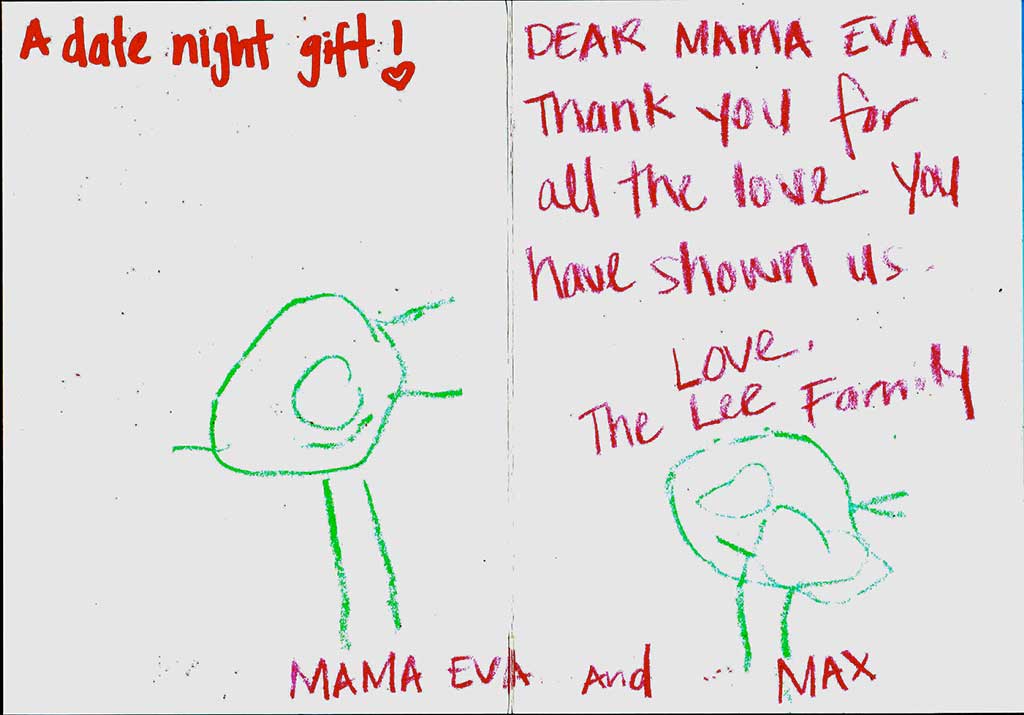 A date night gift!
DEAR MAMA EVA.
Thank you for
all the love you
have shown us.
Love,
The Lee Family
MAMA EVA and MAX